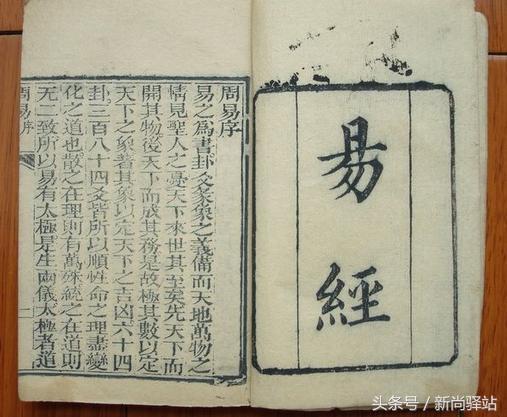 易經
周易序
易之為書卦爻彖象之義備而天地萬物之
情見聖人之憂天下來世其至矣先天下而
開其物後天下而成其務是故極其數以定
天下之象著其象以定天下之吉凶六十四
卦三百八十四爻皆所以順性命之理盡變
化之道也散之在理則有萬殊統之在道則
无二致所以易有太極是生兩儀太極者道
周易序 一
头条号 / 新尚驿站